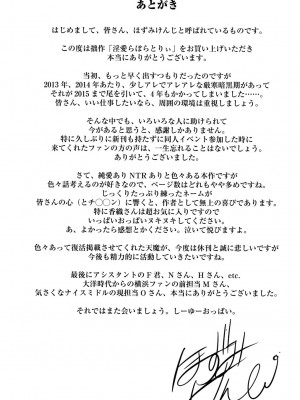 あとがき
はじめまして、皆さん、ほずみけんじと呼ばれているものです。
この度は拙作「淫愛らぼらとりぃ」をお買い上げいただき
本当にありがとうございます。
当初、もっと早く出すつもりだったのですが
2013 年、2014 年あたり、少しアレでアレアレな厳寒暗黒期があって
それが 2015 まで尾を引いて、4 年もかかってしまいました……。
皆さん、いい仕事したいなら、周囲の環境は重視しましょう。
そんな中でも、いろいろな人に助けられて
今があると思うと、感謝しかありません。
特に久しぶりに新刊も持たずに同人イベント参加した時に
来てくれたファンの方の声は、一生忘れることはないでしょう。
ありがとうございました。
さて、純愛あり NTR ありと色々ある本作ですが
色々話考えるのが好きなので、ページ数はどれもやや多めですね。
じっくりたっぷり練ったネームが
皆さんの心（とチ〇〇ン）に響くと、作者として無上の喜びであります。
特に香織さんは超お気に入りですので
いっぱいおっぱいヌキヌキしてください。
あ、よかったら感想とかください。泣いて悦びますよ。
色々あって復活掲載させてくれた天魔が、今度は休刊と誠に悲しいですが
今後も精力的に活動していきたいですね。
最後にアシスタントの F 君、N さん、H さん、etc.
大洋時代からの横浜ファンの前担当 M さん、
気さくなナイスミドルの現担当 O さん、本当にありがとうございました。
それではまた会いましょう。しーゆーおっぱい。